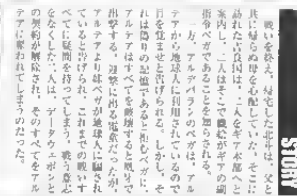 STORY
戦いを終え、帰宅した北斗は、父と
共に帰らぬ母を心配していた。そこに
訪れた吉良国は、二人をギア本部へと
案内し、二人はそこで織絵がギアの副
指令ベガであることを知らされる。
一方、アルデバランのベガは、アル
テアから地球人に利用されているので
目を覚ませと告げられる。しかし、そ
れは偽りの記憶であると拒むベガに、
アルテアはすべてを破壊すると
出撃する。迎撃に出る電童だったが、
アルテアより妹ベガが地球人に騙され
ていると告げられ、これまでの戦いす
べてに疑問を持ってしまう。戦う意志
をなくした二人は、データウェポンと
の契約が解除され、そのすべてをアル
テアに奪われてしまうのだった。